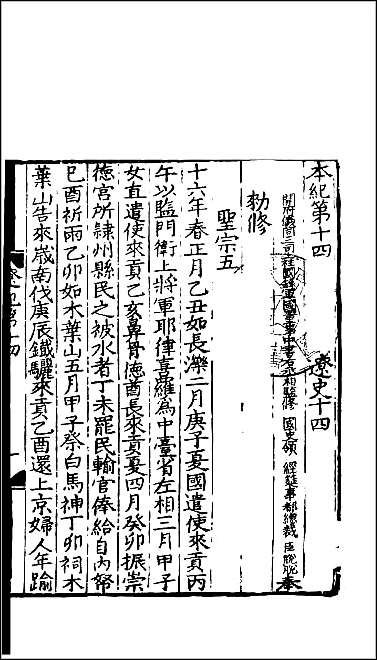 本紀第十四　遼史十四
開府儀同三司上柱國錄軍國重事中書右丞相監修國史領經筵事都總裁臣脫脫奉
勑修
聖宗五
十六年春正月乙丑如長濼二月庚子夏國遣使來貢丙
午以監門衛上將軍耶律喜羅為中臺省左相三月甲子
女直遣使來貢乙亥鼻骨德酋長來貢夏四月癸卯振崇
德宮所隷州縣民之被水者丁未罷民輸官俸給自內帑
己酉祈雨乙卯如木葉山五月甲子祭白馬神丁卯祠木
葉山告來歲南伐庚辰鐵驪來貢乙酉還上京婦人年踰